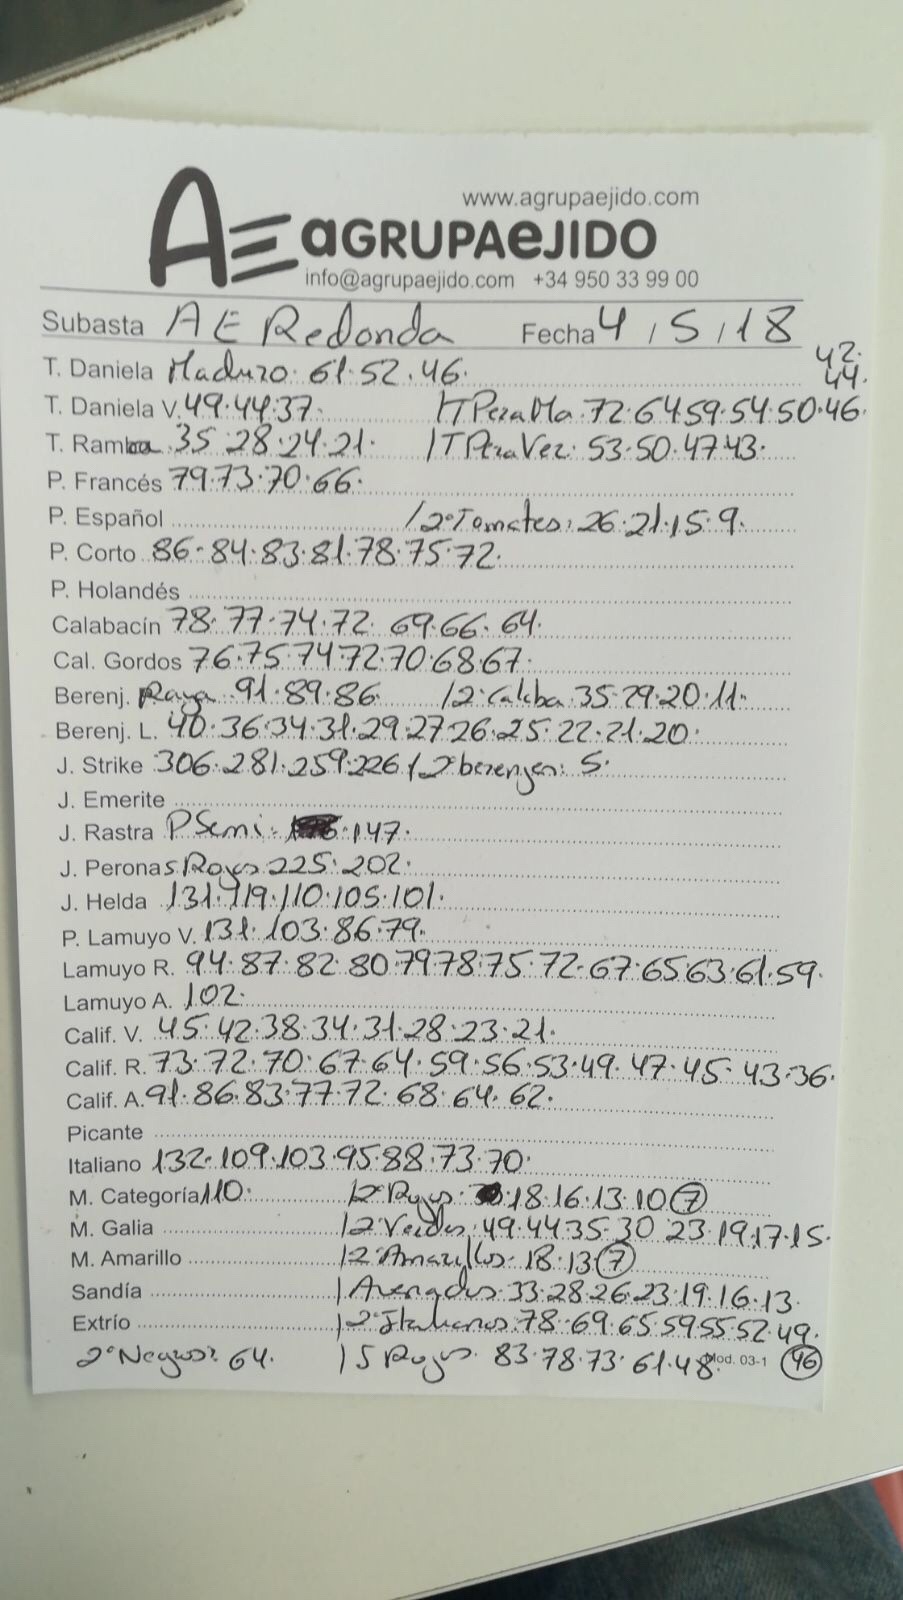 www.agrupaejido.com
AE aGRUPAeJIDO
info@agrupaejido.com +34 950 33 99 00
Subasta AE Redonda Fecha 4/5/18
42.
44.
T. Daniela Maduro. 61.52.46.
T. Daniela V. 49.44.37. /TPeraMa. 72.64.59.54.50.46.
T. Rama 35.28.24.21. /TPeraVer. 53.50.47.43.
P. Francés 79.73.70.66.
P. Español /2ºTomates: 26.21.15.9.
P. Corto 86.84.83.81.78.75.72.
P. Holandés
Calabacín 78.77.74.72. 69.66.64.
Cal. Gordos 76.75.74.72.70.68.67.
Berenj. Raya. 91.89.86. /2ºCalaba. 35.29.20.11.
Berenj. L. 40.36.34.31.29.27.26.25.22.21.20.
J. Strike 306.281.259.226 / 2ºberengen: 5.
J. Emerite
J. Rastra P Semi. 147.
J. Peronas Rojas 225.202.
J. Helda 131.119.110.105.101.
P. Lamuyo V. 131.103.86.79.
Lamuyo R. 94.87.82.80.79.78.75.72.67.65.63.61.59.
Lamuyo A. 102.
Calif. V. 45.42.38.34.31.28.23.21.
Calif. R. 73.72.70.67.64.59.56.53.49.47.45.43.36.
Calif. A. 91.86.83.77.72.68.64.62.
Picante
Italiano 132.109.103.95.88.73.70.
M. Categoría 110. /2º Rojos. 18.16.13.10 7
M. Galia /2ºVerdes. 49.44.35.30 23.19.17.15.
M. Amarillo /2ºAmarillos. 18.13 7
Sandía /Asenados. 33.28.26.23.19.16.13.
Extrío /2ºItalianos. 78.69.65.59.55.52.49.
2ºNegros: 64. /S Rojos. 83.78.73.61.48. Mod. 03-1 46